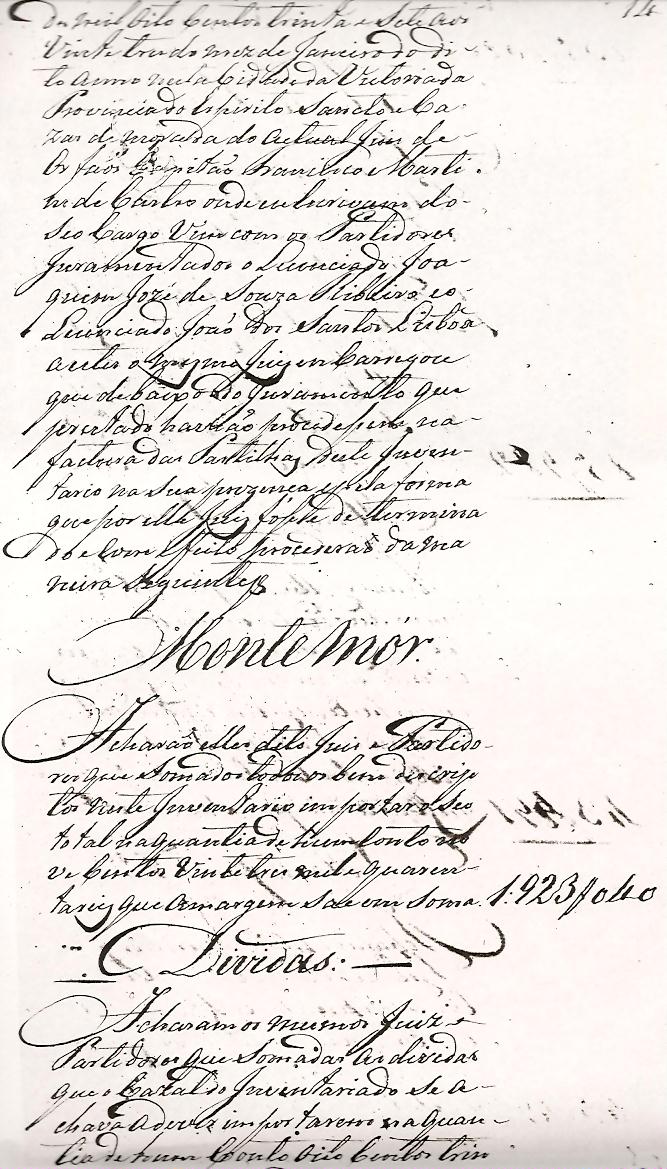 14
de mil oito Centos trinta e Sete aos
Vinte tres do mez de Janeiro do di-
to Anno nesta Cidade da Victoria da
Provincia do Espirito Sancto e Ca-
zas de morada do Actual Juis de
Orfaõs Capitaõ Francisco Marti-
ns de Castro onde eu Escrivam do
Seo Cargo Vim com os Partidores
Juramentados o Lecenciado Joa-
quim Jozé de Souza Ribeiro, e o
Lecenciado Joaõ dos Santos Lisboa
a elles o mesmo Juis emCarregou
que debaixo do Juramento que
prestado haviaõ procedessem na
factura das Partilhas deste Inven-
tario na sua prezença e pela forma
que por elle Juis fosse determina
do e com effeito procederaõ da ma
neira Seguinte
Monte Mór.
Acharaõ elles dito Juis e Partido-
res que Somados todos os bens descrip
tos neste Inventario importar o Seo
total na quantia de hum Conto no
ve Centos Vinte tres mil e quaren-
ta reis que a margem sae em Soma. 1:923$040
Dividas:
Acharam os mesmos Juiz e
Partidores que Somadas as dividas
que o Cazal do Inventariado se a-
chava a dever importarem na quan-
tia de hum Conto oito Centos trin